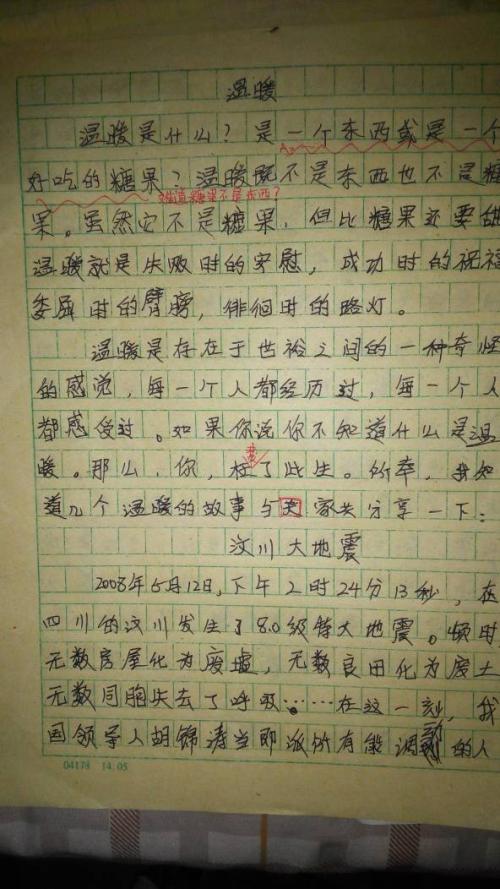 温暖
温暖是什么？是一个东西或是一个
好吃的糖果？温暖既不是东西也不是糖
难道糖果不是东西？
果。虽然它不是糖果，但比糖果还要甜
温暖就是失败时的安慰，成功时的祝福
委屈时的臂膀，徘徊时的路灯。
温暖是存在于世俗之间的一种奇怪
的感觉，每一个人都经历过，每一个人
都感受过。如果你说你不知道什么是温
暖。那么，你，枉了此生。所幸，我知
道几个温暖的故事与大家去分享一下：
汶川大地震
2008年5月12日，下午2时24分13秒，在
四川的汶川发生了8.0级特大地震。顿时
无数房屋化为废墟，无数良田化为废土
无数同胞失去了呼吸……在这一刻，我
国领导人胡锦涛当即派所有能调动的人
04178 14.05